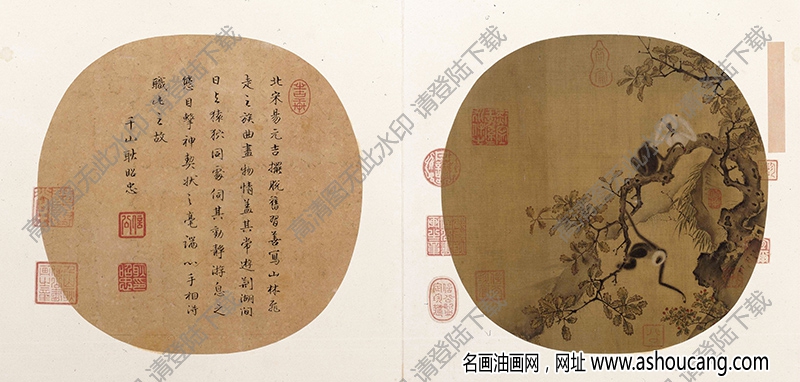 北宋易元吉擺脫舊習善寫山林飛
走之族曲盡物情蓋其常遊荊湖間
日与猿狖同處伺其動靜游息之
態目擊神契狀之毫端心手相得
職此之故
千山耿昭忠
高清图无此水印 请登陆下载
高清图无此水印 请登陆下载
名画油画网，网址 www.ashoucang.com